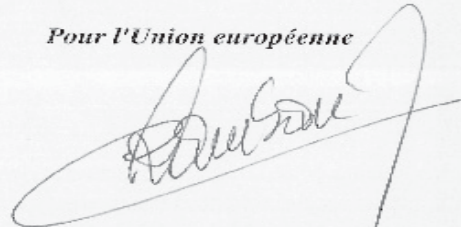 Pour l'Union européenne